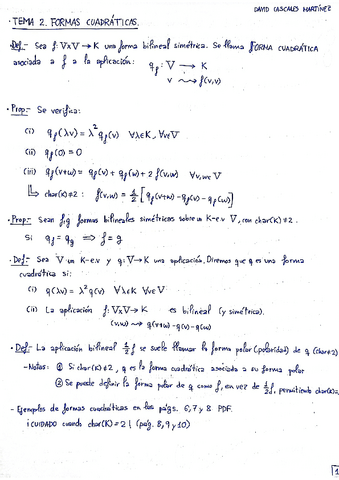 DAVID CASCALES MARTÍNEZ
· TEMA 2. FORMAS CUADRÁTICAS.
· Def.- Sea f: V×V → K una forma bilineal simétrica. Se llama FORMA CUADRÁTICA
asociada a f a la aplicación: q_f: V → K
v ⤳ f(v,v)
· Prop.- Se verifica:
(i) q_f(λv) = λ² q_f(v) ∀λ∈K, ∀v∈V
(ii) q_f(0) = 0
(iii) q_f(v+w) = q_f(v) + q_f(w) + 2 f(v,w) ∀v,w∈V
↳ char(K)≠2 : f(v,w) = 1/2 [q_f(v+w) - q_f(v) - q_f(w)]
· Prop.- Sean f,g formas bilineales simétricas sobre un K-e.v V, con char(K)≠2.
Si q_f = q_g ⟹ f = g
· Def.- Sea V un K-e.v y q: V→K una aplicación. Diremos que q es una forma
cuadrática si:
(i) q(λv) = λ² q(v) ∀λ∈K ∀v∈V
(ii) La aplicación f: V×V → K es bilineal (y simétrica).
(v,w) ⤳ q(v+w) - q(v) - q(w)
· Def.- La aplicación bilineal 1/2 f se suele llamar la forma polar (polaridad) de q (char≠2)
- Notas: ① Si char(K)≠2, q es la forma cuadrática asociada a su forma polar
② Se puede definir la forma polar de q como f, en vez de 1/2 f, permitiendo char(K)=2
- Ejemplos de formas cuadráticas en las págs. 6, 7 y 8 PDF.
¡CUIDADO cuando char(K) = 2! (pág. 8, 9 y 10)
1